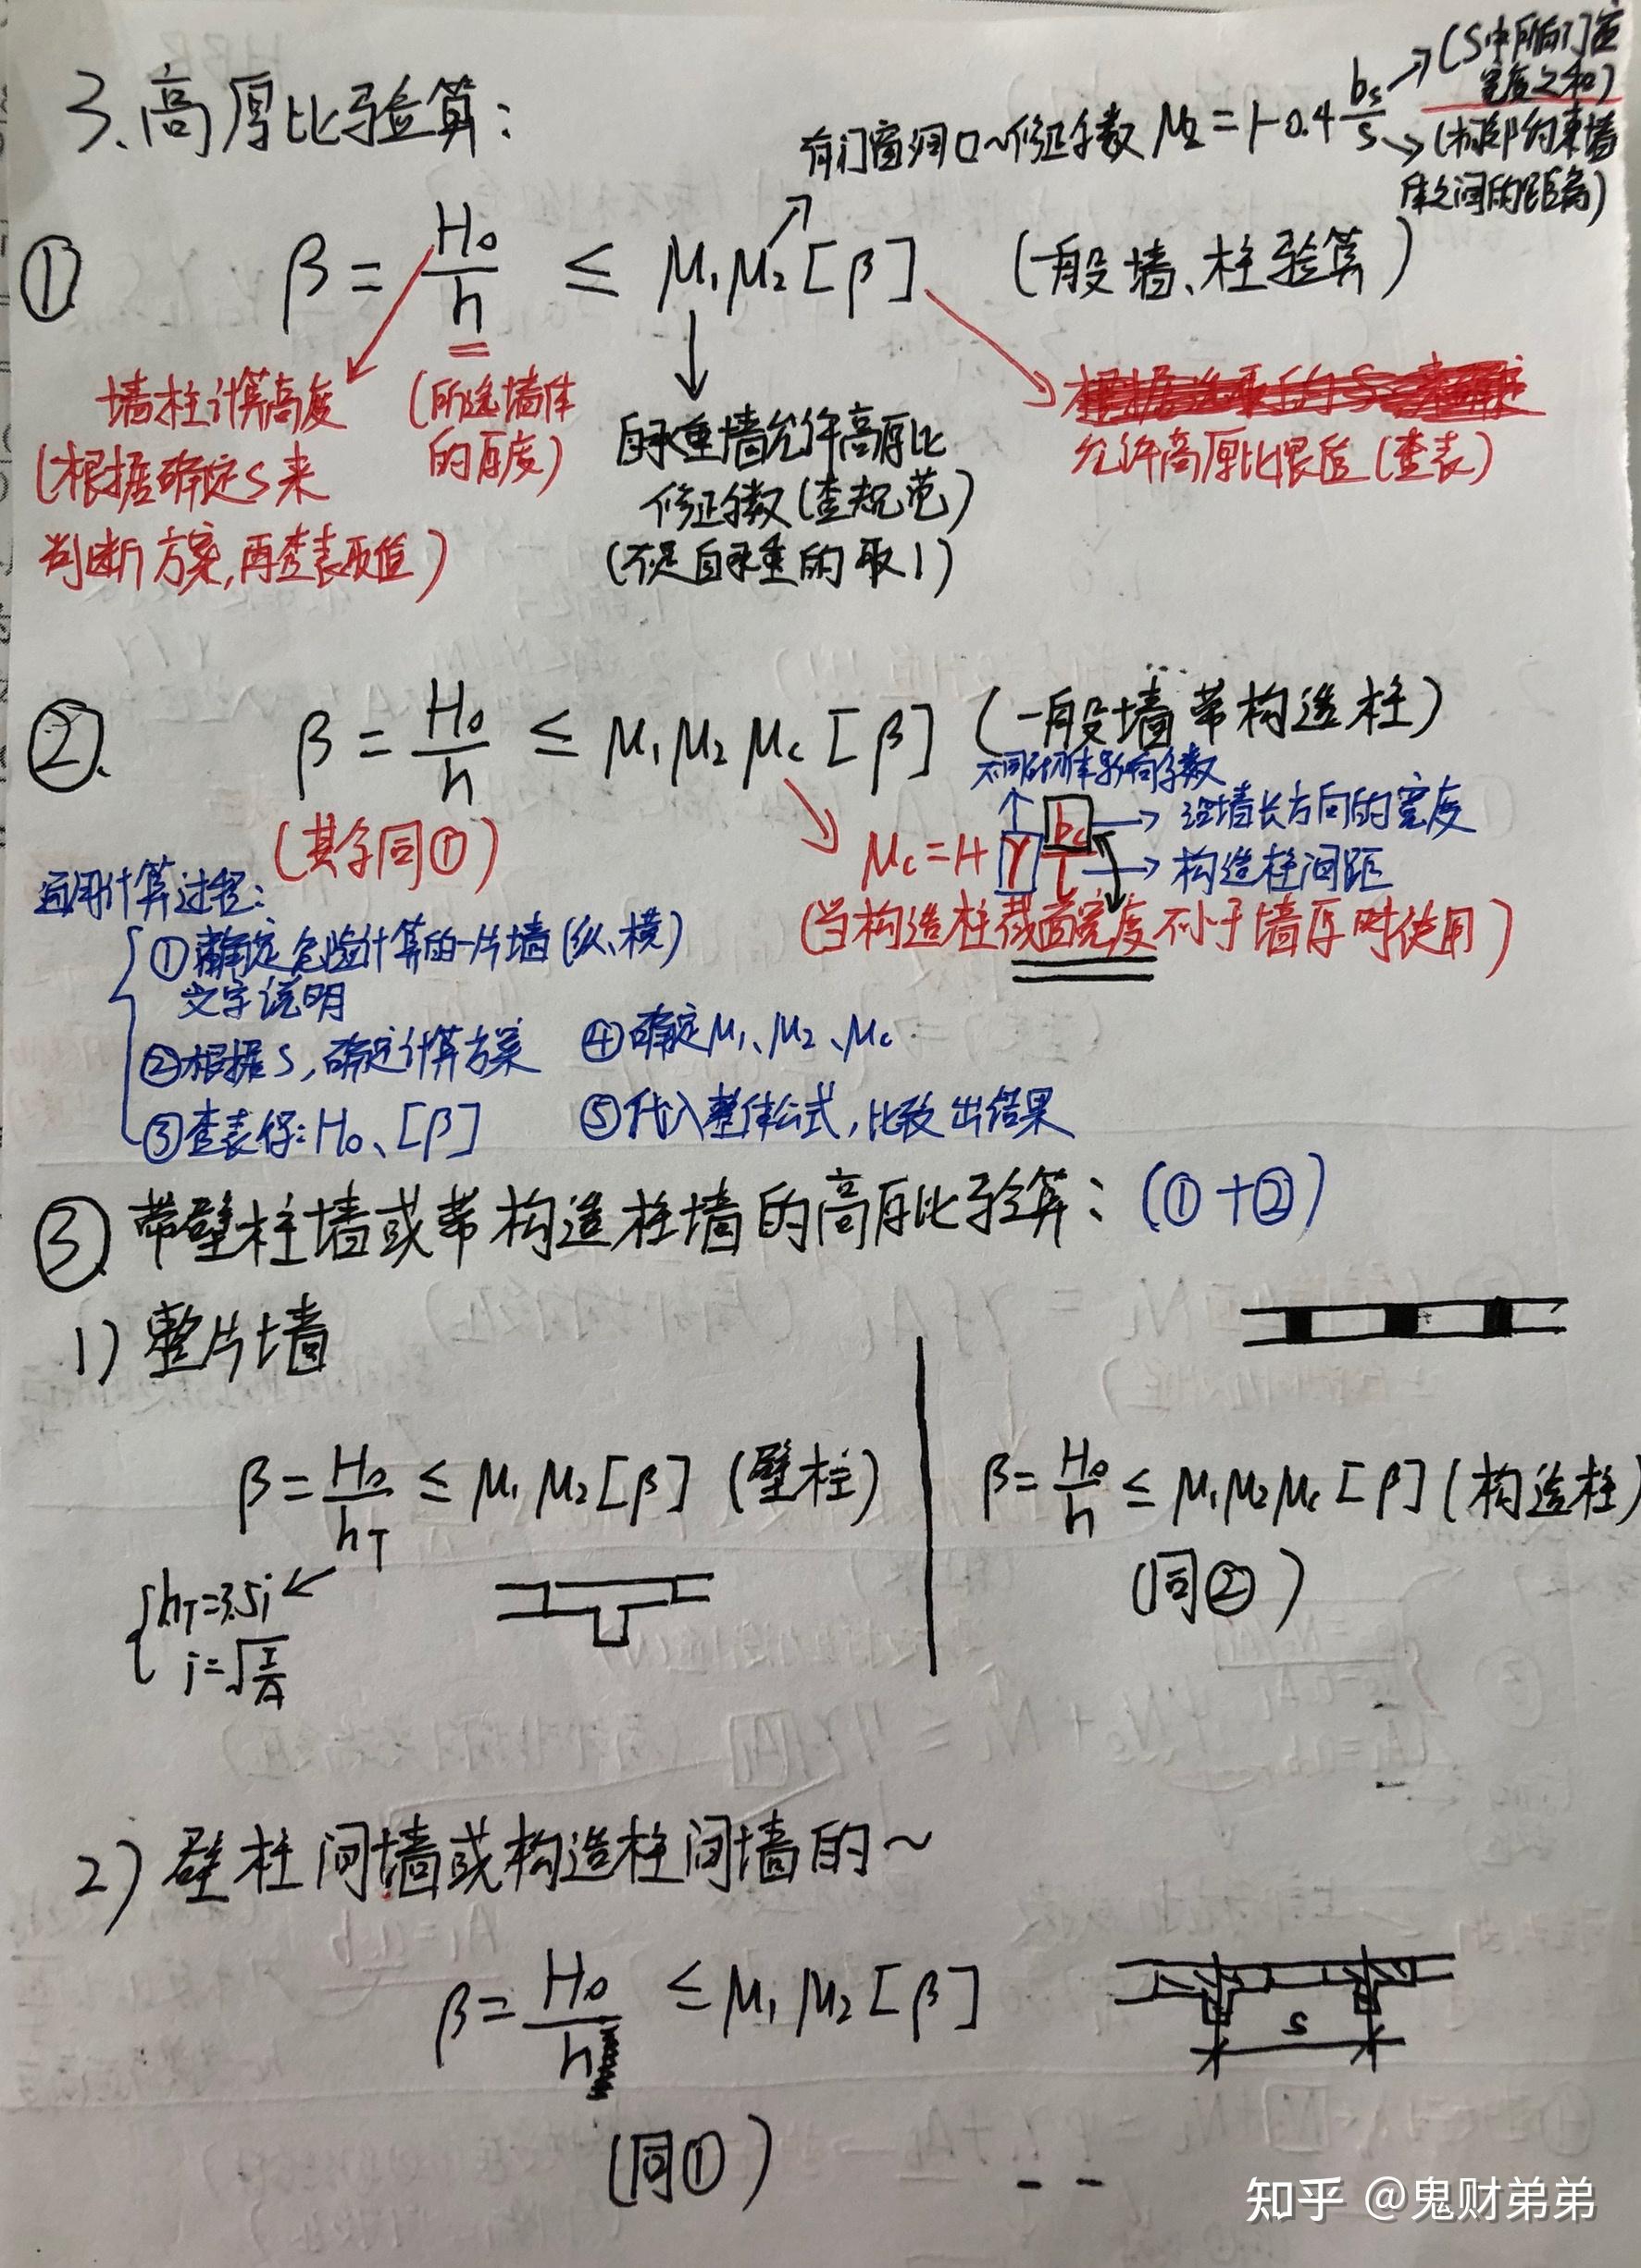 3.高厚比验算:
有门窗洞口~修正系数 μ2=1-0.4 bs/s
(S中所有门窗
宽度之和)
(相邻约束墙
体之间的距离)
① β = H0/h ≤ μ1μ2[β] (一般墙、柱验算)
墙柱计算高度
(根据确定S来
判断方案,再查表取值)
(所选墙体
的厚度)
自承重墙允许高厚比
修正系数(查规范)
(不是自承重的取1)
允许高厚比限值(查表)
②. β = H0/h ≤ μ1μ2μc[β] (一般墙带构造柱)
(其余同①)
不同砌体影响系数
μc=1+γ bc/l
沿墙长方向的宽度
构造柱间距
(当构造柱截面宽度不小于墙厚时使用)
通用计算过程:
①确定危险计算的一片墙(纵、横)
文字说明
②根据S,确定计算方案
③查表得:H0、[β]
④确定μ1、μ2、μc
⑤代入整体公式,比较出结果
③.带壁柱墙或带构造柱墙的高厚比验算:(①+②)
1)整片墙
β=H0/hT ≤ μ1μ2[β](壁柱)
hT=3.5i
i=√I/A
β=H0/h ≤ μ1μ2μc[β](构造柱)
(同②)
2)壁柱间墙或构造柱间墙的~
β=H0/h ≤ μ1μ2[β]
S
(同①)
知乎 @鬼财弟弟